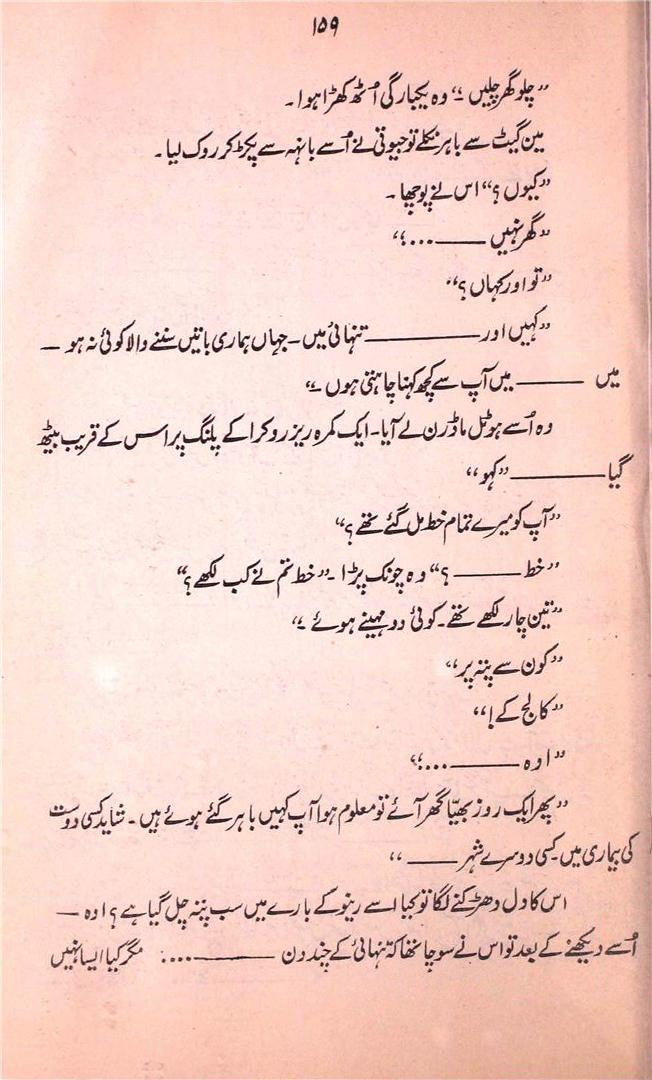 ۱۵۹
”چلو گھر چلیں ۔“ وہ یکبارگی اُٹھ کھڑا ہوا۔
مین گیٹ سے باہر نکلے تو جیوتی نے اُسے بانہہ سے پکڑ کر روک لیا۔
”کیوں ؟“ اس نے پوچھا ۔
”گھر نہیں ——— ...؛“
”تو اور کہاں ؟“
”کہیں اور ——————— تنہائی میں ۔ جہاں ہماری باتیں سننے والا کوئی نہ ہو —
میں ———— میں آپ سے کچھ کہنا چاہتی ہوں ۔“
وہ اُسے ہوٹل ماڈرن لے آیا۔ ایک کمرہ ریزرو کرا کے پلنگ پر اس کے قریب بیٹھ
گیا —————— ”کہو“
”آپ کو میرے تمام خط مل گئے تھے ؟“
”خط ———— ؟“ وہ چونک پڑا ۔ ”خط تم نے کب لکھے ؟“
”تین چار لکھے تھے ۔ کوئی دو مہینے ہوئے ۔“
”کون سے پتہ پر“
”کالج کے !“
”اوہ ———— ....؟“
”پھر ایک روز بھیّا گھر آئے تو معلوم ہوا آپ کہیں باہر گئے ہوئے ہیں ۔ شاید کسی دوست
کی بیماری میں ۔ کسی دوسرے شہر ——— “
اس کا دل دھڑکنے لگا تو کیا اسے رینو کے بارے میں سب پتہ چل گیا ہے ؟ اوہ —
اُسے دیکھنے کے بعد تو اس نے سوچا تھا کہ تنہائی کے چند دن ————— .... مگر کیا ایسا نہیں